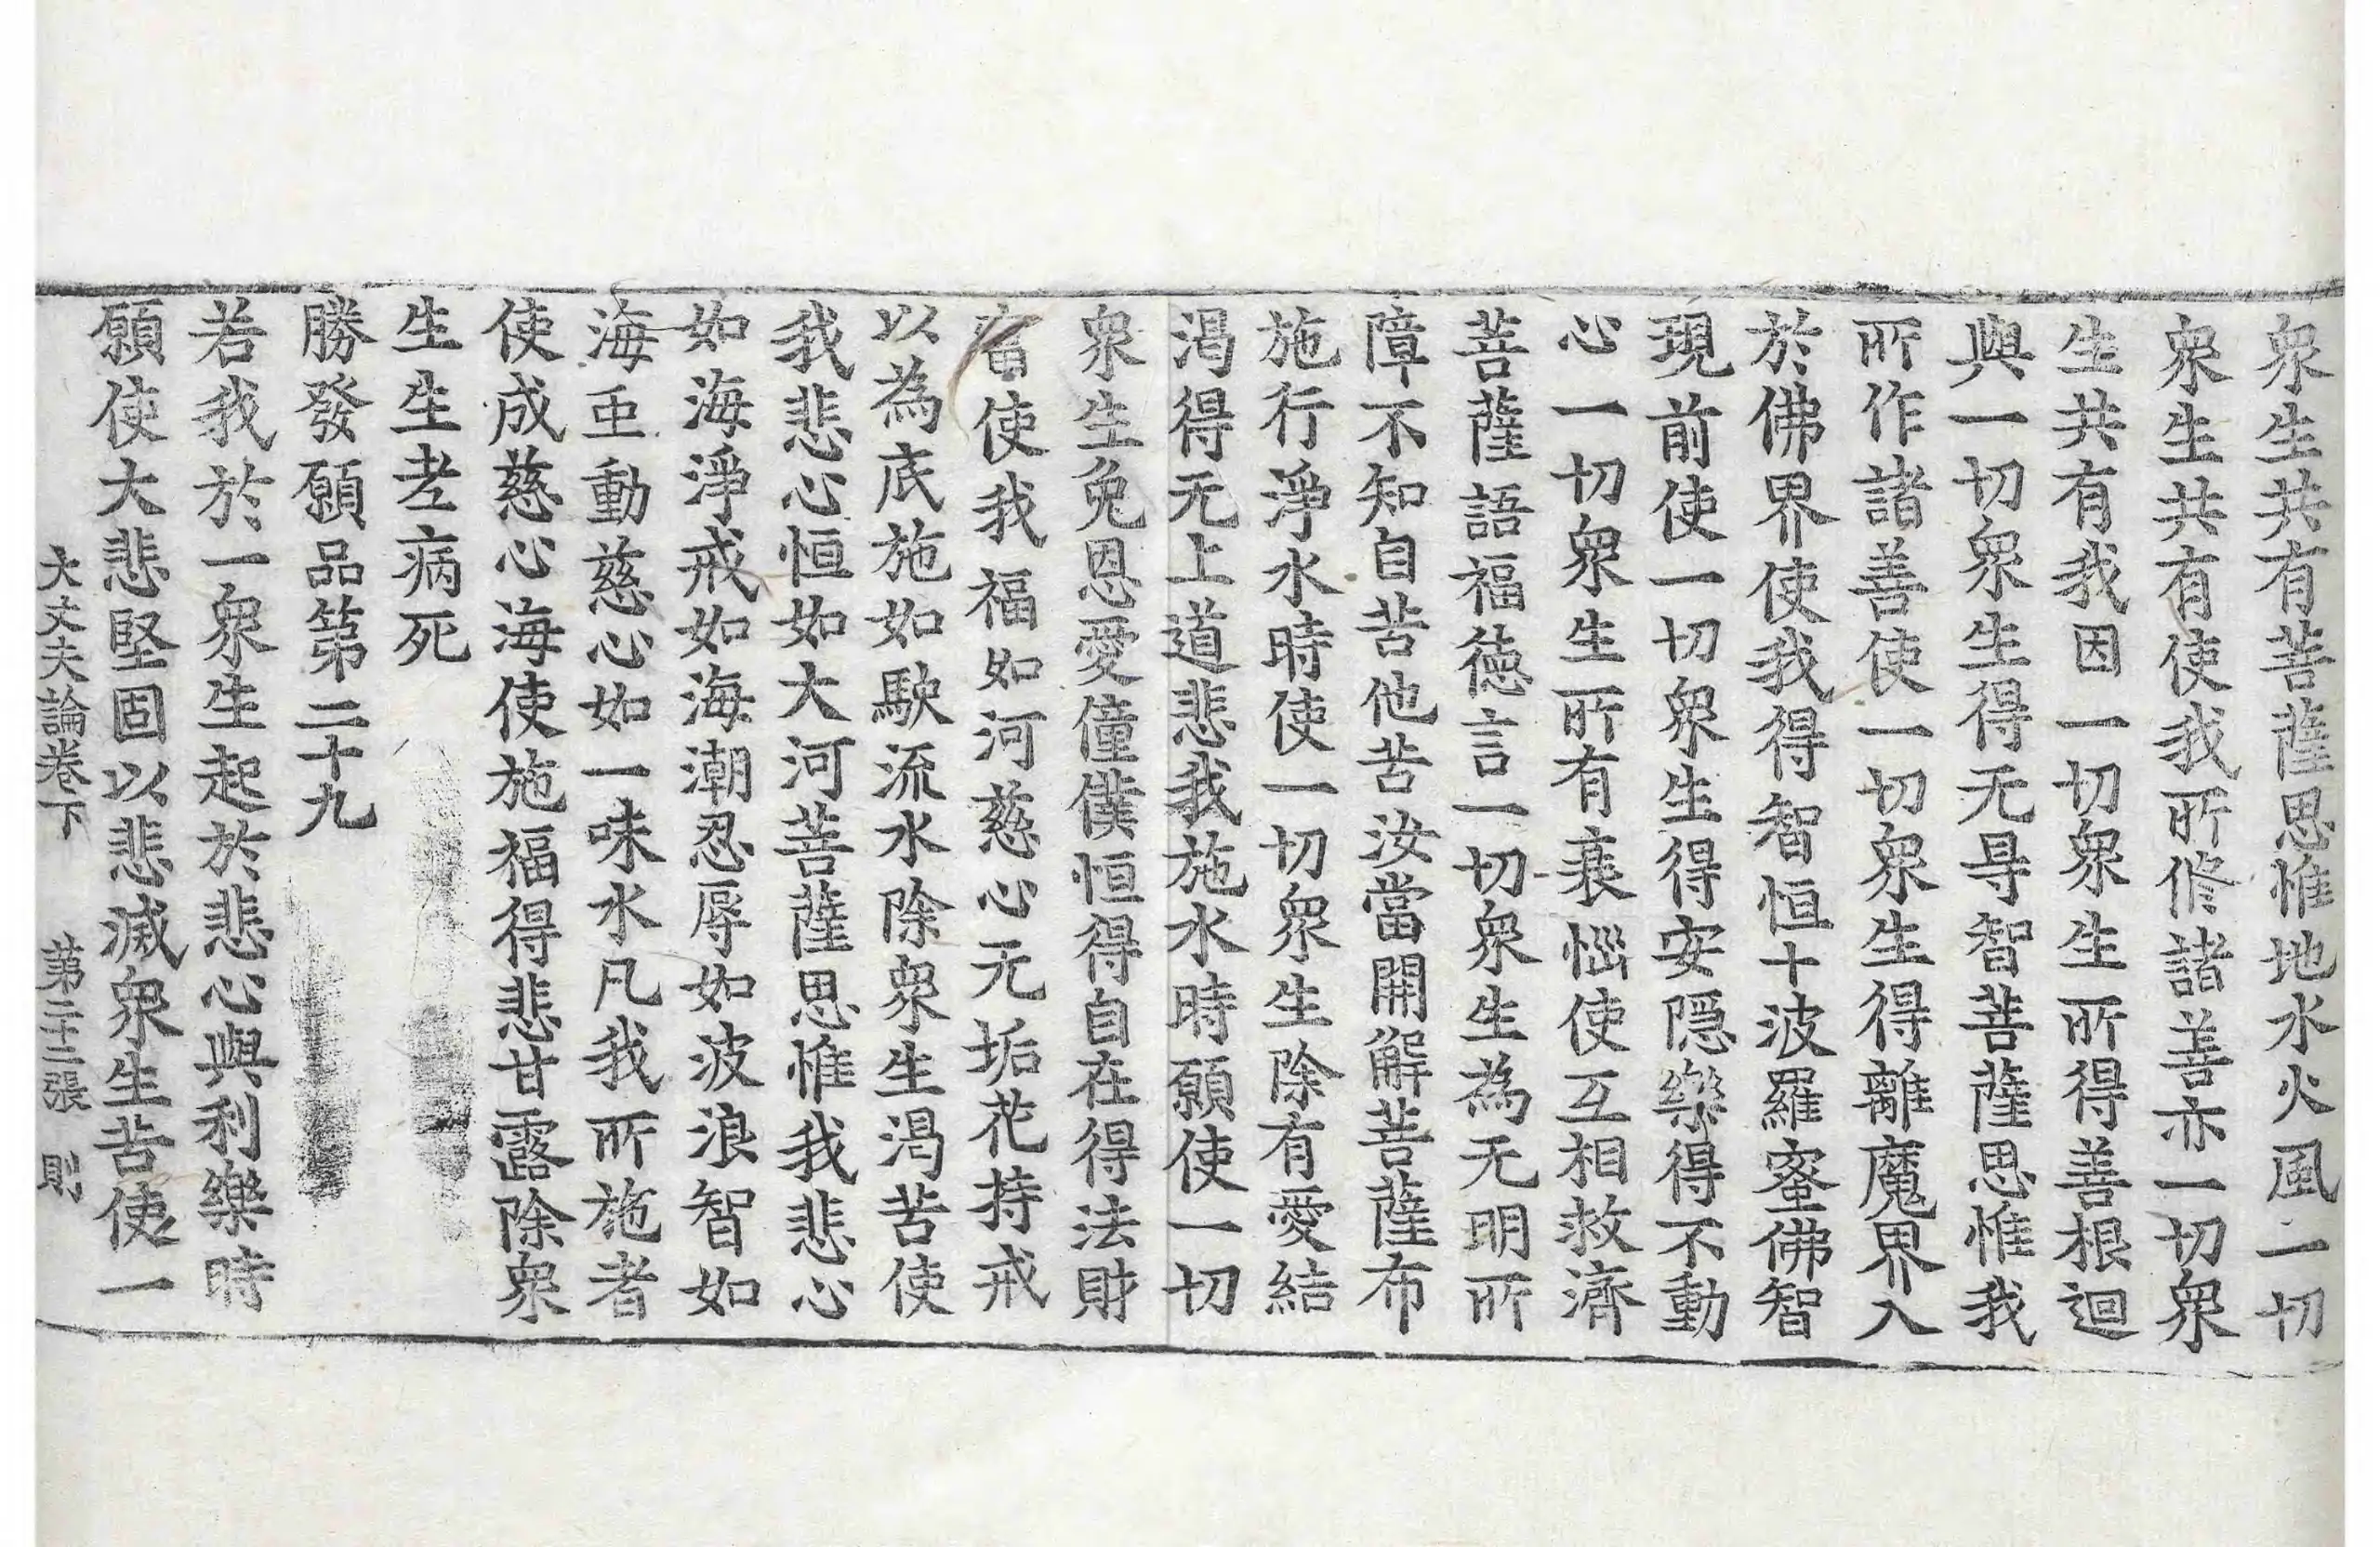 衆生共有菩薩思惟地水火風一切
衆生共有使我所修諸善亦一切衆
生共有我因一切衆生所得善根迴
與一切衆生得无㝵智菩薩思惟我
所作諸善使一切衆生得離魔界入
於佛界使我得智恒十波羅蜜佛智
現前使一切衆生得安隱樂得不動
心一切衆生所有衰惱使互相救濟
菩薩語福德言一切衆生為无明所
障不知自苦他苦汝當開解菩薩布
施行淨水時使一切衆生除有愛結
渴得无上道悲我施水時願使一切
衆生免恩愛僮僕恒得自在得法財
富使我福如河慈心无垢花持戒
以為底施如駛流水除衆生渴苦使
我悲心恒如大河菩薩思惟我悲心
如海淨戒如海潮忍辱如波浪智如
海重動慈心如一味水凡我所施者
使成慈心海使施福得悲甘露除衆
生生老病死
勝發願品第二十九
若我於一衆生起於悲心與利樂時
願使大悲堅固以悲滅衆生苦使一
大丈夫論卷下　第二十二張　則